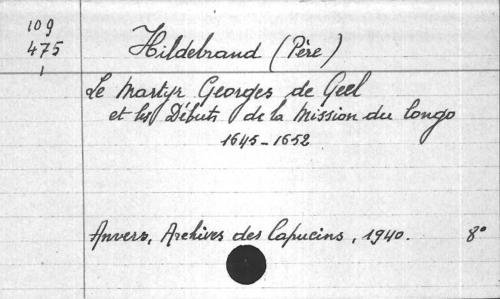 109
475
1
Hildebrand (Père)
Le Martyr Georges de Geel
et les Débuts de la Mission du Congo
1645-1652
Anvers, Archives des Capucins, 1940. 8°